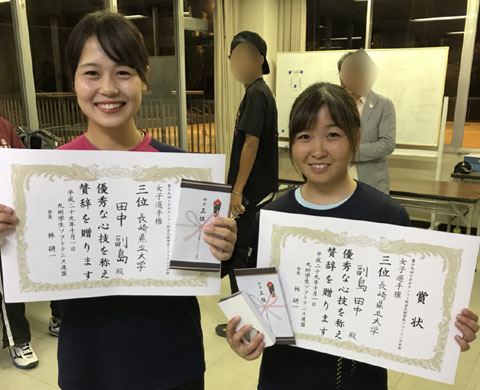 女子選手権
三位 長崎県立大学
田中 副島 殿
優秀な心技を称え
賛辞を贈ります
平成二十九年十月一日
九州学生ソフトテニス連盟
会長 林 研一
三位
賞状
女子選手権
三位 長崎県立大学
副島 田中 殿
優秀な心技を称え
賛辞を贈ります
平成二十九年十月一日
九州学生ソフトテニス連盟
会長 林 研一
三位